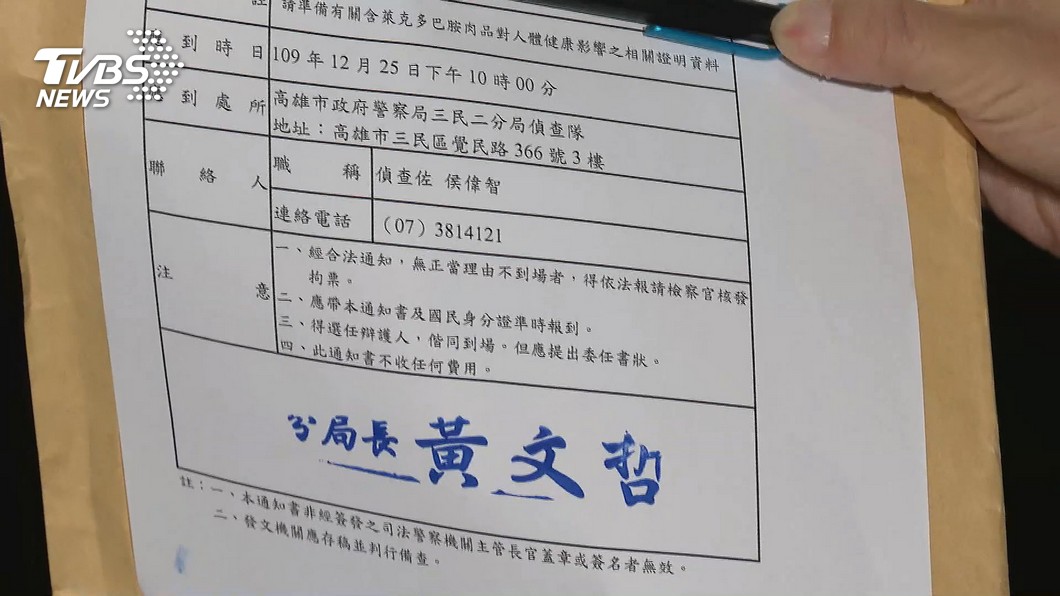 TVBS
NEWS
註 請準備有關含萊克多巴胺肉品對人體健康影響之相關證明資料
到時日 109年12月25日下午10時00分
到處所 高雄市政府警察局三民二分局偵查隊
地址：高雄市三民區覺民路366號3樓
聯絡人 職稱 偵查佐 侯偉智
連絡電話 (07)3814121
注意 一、經合法通知，無正當理由不到場者，得依法報請檢察官核發
拘票。
二、應帶本通知書及國民身分證準時報到。
三、得選任辯護人，偕同到場。但應提出委任書狀。
四、此通知書不收任何費用。
分局長 黃文哲
註：一、本通知書非經簽發之司法警察機關主管長官蓋章或簽名者無效。
二、發文機關應存稿並判行備查。